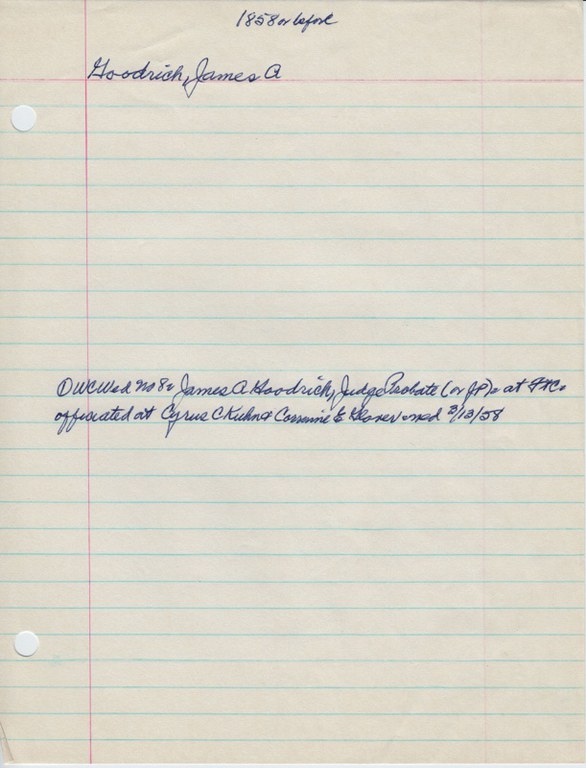 1858 or before
Goodrich, James A
OWCWed No 8: James A Goodrich, Judge Probate (or JP), at Ft Co
officiated at Cyrus C Kuhn & E wed 3/13/58